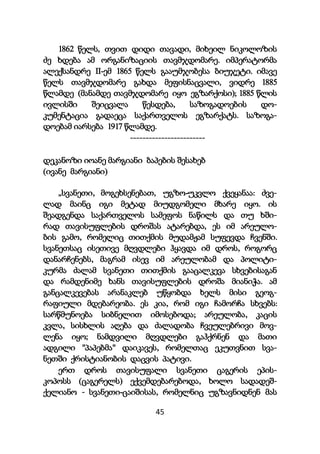 1862 წელს, თვით დიდი თავადი, მიხეილ ნიკოლოზის
ძე ხდება ამ ორგანიზაციის თავმჯდომარე. იმპერატორმა
ალექსანდრე II-ემ 1865 წელს გააუმჯობესა ბიუჯეტი. იმავე
წელს თავმჯდომარე გახდა მეფისნაცვალი, ვიდრე 1885
წლამდე (მანამდე თავმჯდომარე იყო ეგზარქოსი); 1885 წლის
ივლისში შეიცვალა წესდება, საზოგადოების დო-
კუმენტაცია გადაეცა საქართველოს ეგზარქატს. საზოგა-
დოებამ იარსება 1917 წლამდე.
------------------------
დეკანოზი იოანე მარგიანი ბაპების შესახებ
(ივანე მარგიანი)
„სვანეთი, მოგეხსენებათ, უგზო-უკვლო ქვეყანაა: ძვე-
ლად მაინც იგი მეტად მიუდგომელი მხარე იყო. ის
შეადგენდა საქართველოს სამეფოს ნაწილს და თუ ხში-
რად თავისუფლების დროშას ატარებდა, ეს იმ არეულო-
ბის გამო, რომელიც თითქმის მუდამჟამ სუფევდა ჩვენში.
სვანეთსაც ისეთივე მღვდლები ჰყავდა იმ დროს, როგორც
დანარჩენებს, მაგრამ ისევ იმ არეულობამ და პოლიტი-
კურმა ძალამ სვანეთი თითქმის გააცალკევა სხვებისაგან
და რამდენიმე ხანს თავისუფლების დროშა მიანიჭა. ამ
განცალკევებას არანაკლებ უწყობდა ხელს მისი გეოგ-
რაფიული მდებარეობა. ეს კია, რომ იგი ჩამორჩა სხვებს:
სარწმუნოება სიბნელით იმოსებოდა; არეულობა, კაცის
კვლა, სისხლის აღება და ძალადობა ჩვეულებრივი მოვ-
ლენა იყო; ნამდვილი მღვდლები გაჰქრნენ და მათი
ადგილი "პაპებმა" დაიკავეს, რომელთაც ეკუთვნით სვა-
ნეთში ქრისტიანობის დაცვის პატივი.
ერთ დროს თავისუფალი სვანეთი ცაგერის ეპის-
კოპოსს (ცაგერელს) ექვემდებარებოდა, ხოლო სადადეშ-
ქელიანო - სვანეთი-ცაიშისას, რომელნიც უგზავნიდნენ მას
45